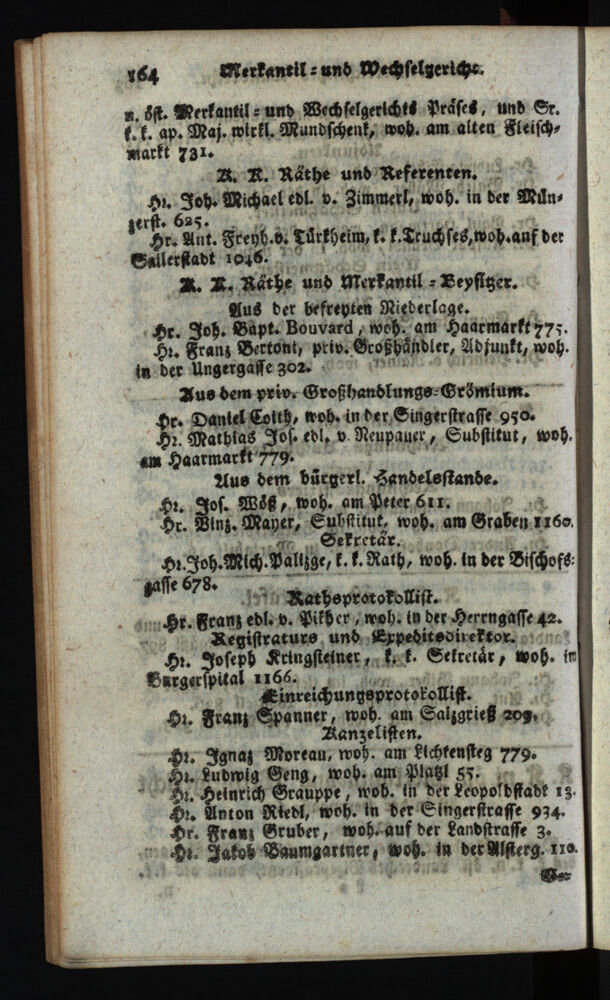 164 Merkantil-und Wechselgericht.
n. öst. Merkantil-und Wechselgerichts Präses, und Sr.
k. k. ap. Maj. wirkl. Mundschenk, woh. am alten Fleisch-
markt 731.
K. K. Räthe und Referenten.
Hr. Joh. Michael edl. v. Zimmerl, woh. in der Mün-
zerst. 625.
Hr. Ant. Freyh. v. Türkheim, k. k. Truchses, woh. auf der
Sailerstadt 1046.
K. K. Räthe und Merkantil-Beysitzer.
Aus der befreyten Niederlage.
Hr. Joh. Bapt. Bouvard, woh. am Haarmarkt 775.
Hr. Franz Bertoni, priv. Großhändler, Adjunkt, woh.
in der Ungergasse 302.
Aus dem priv. Großhandlungs-Grömium.
Hr. Daniel Coith, woh. in der Singerstrasse 950.
Hr. Mathias Jos. edl. v. Neupauer, Substitut, woh.
am Haarmarkt 779.
Aus dem bürgerl. Handelsstande.
Hr. Jos. Wöß, woh. am Peter 611.
Hr. Vinz. Mayer, Substitut, woh. am Graben 1160.
Sekretär.
Hr. Joh. Mich. Palizge, k. k. Rath, woh. in der Bischof-
gasse 678.
Rathsprotokollist.
Hr. Franz edl. v. Pikher, woh. in der Herrngasse 42.
Registraturs und Expeditsdirektor.
Hr. Joseph Kringsteiner, k. k. Sekretär, woh. im
Burgerspital 1166.
Einreichungsprotokollist.
Hr. Franz Spanner, woh. am Salzgrieß 209.
Kanzelisten.
Hr. Ignaz Moreau, woh. am Lichtensteg 779.
Hr. Ludwig Geng, woh. am Platzl 55.
Hr. Heinrich Grauppe, woh. in der Leopoldstadt 13.
Hr. Anton Riedl, woh. in der Singerstrasse 934.
Hr. Franz Gruber, woh. auf der Landstrasse 3.
Hr. Jakob Baumgartner, woh. in der Alsterg. 110.